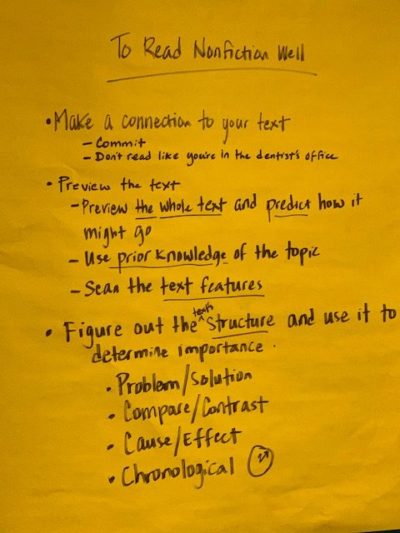 To Read Nonfiction Well
• Make a connection to your text
- Commit
- Don't read like you're in the dentist's office
• Preview the text
- Preview the whole text and predict how it
might go
- Use prior knowledge of the topic
- Scan the text features
• Figure out the text's structure and use it to
determine importance.
• Problem/Solution
• Compare/Contrast
• Cause/Effect
• Chronological